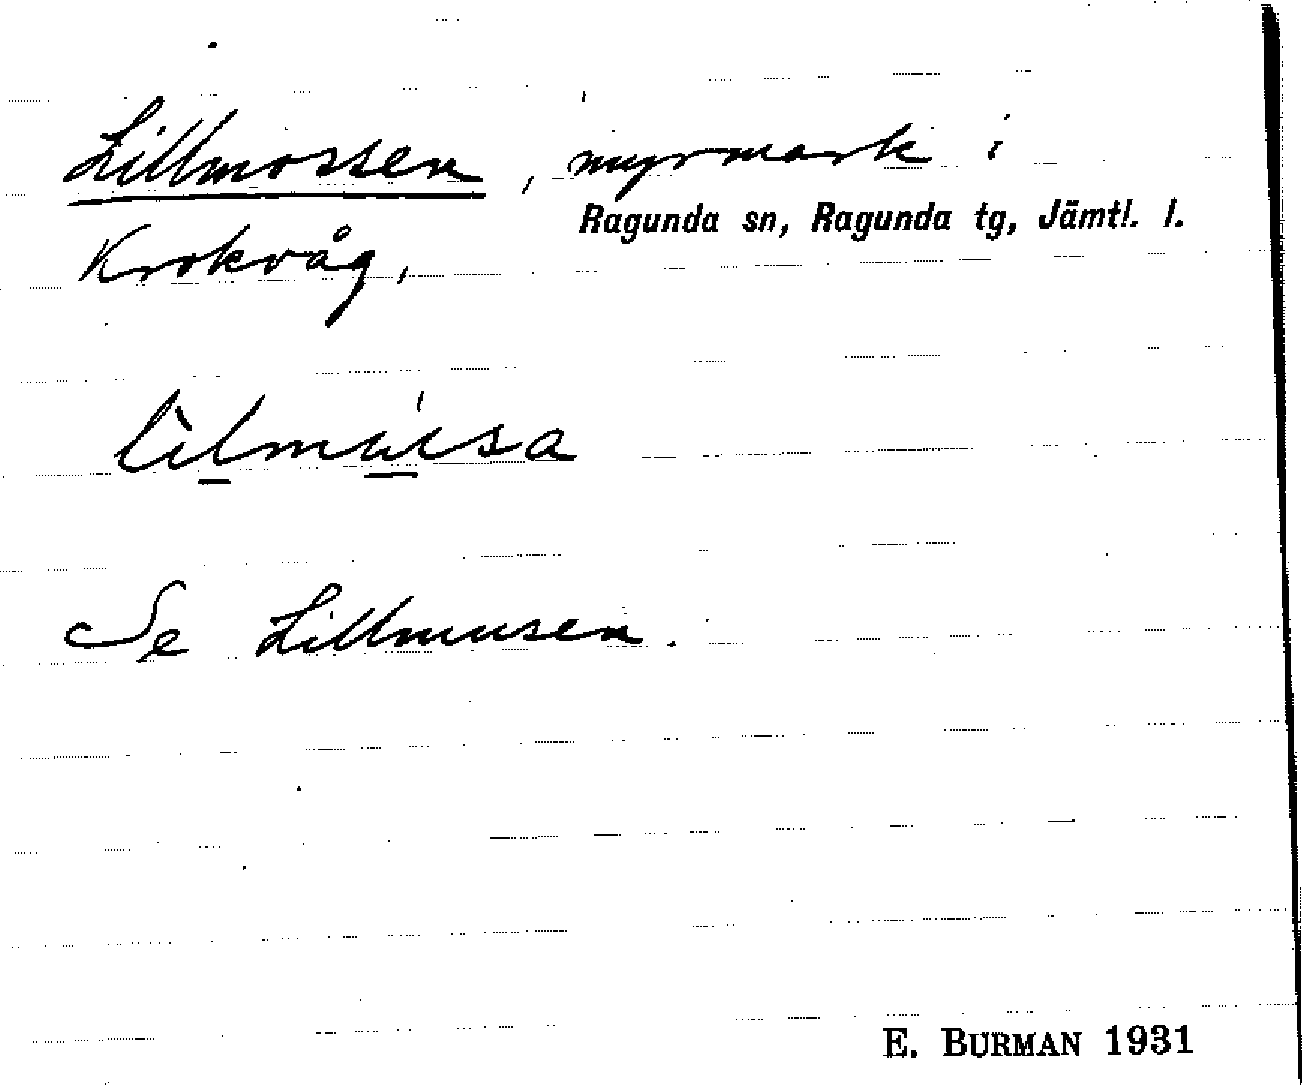 Lillmossen, myrmark i
Ragunda sn, Ragunda tg, Jämtl. l.
Krokvåg,
Se Lillmusen.
E. BURMAN 1931